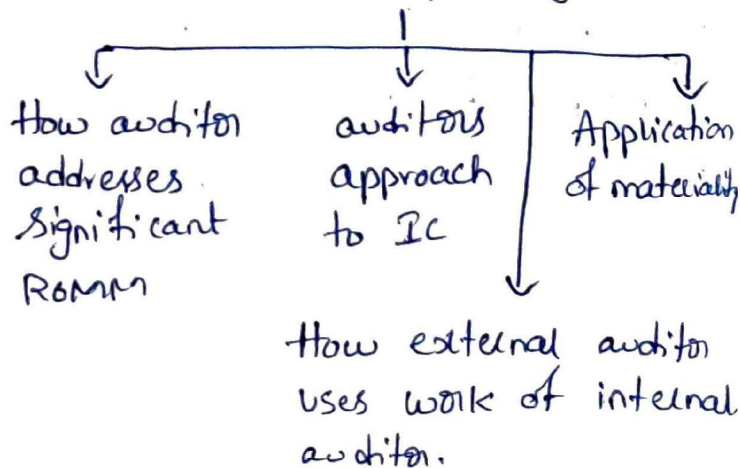 How auditor
addresses
significant
ROMM
auditors
approach
to IC
Application
of materiality
How external auditor
uses work of internal
auditor.